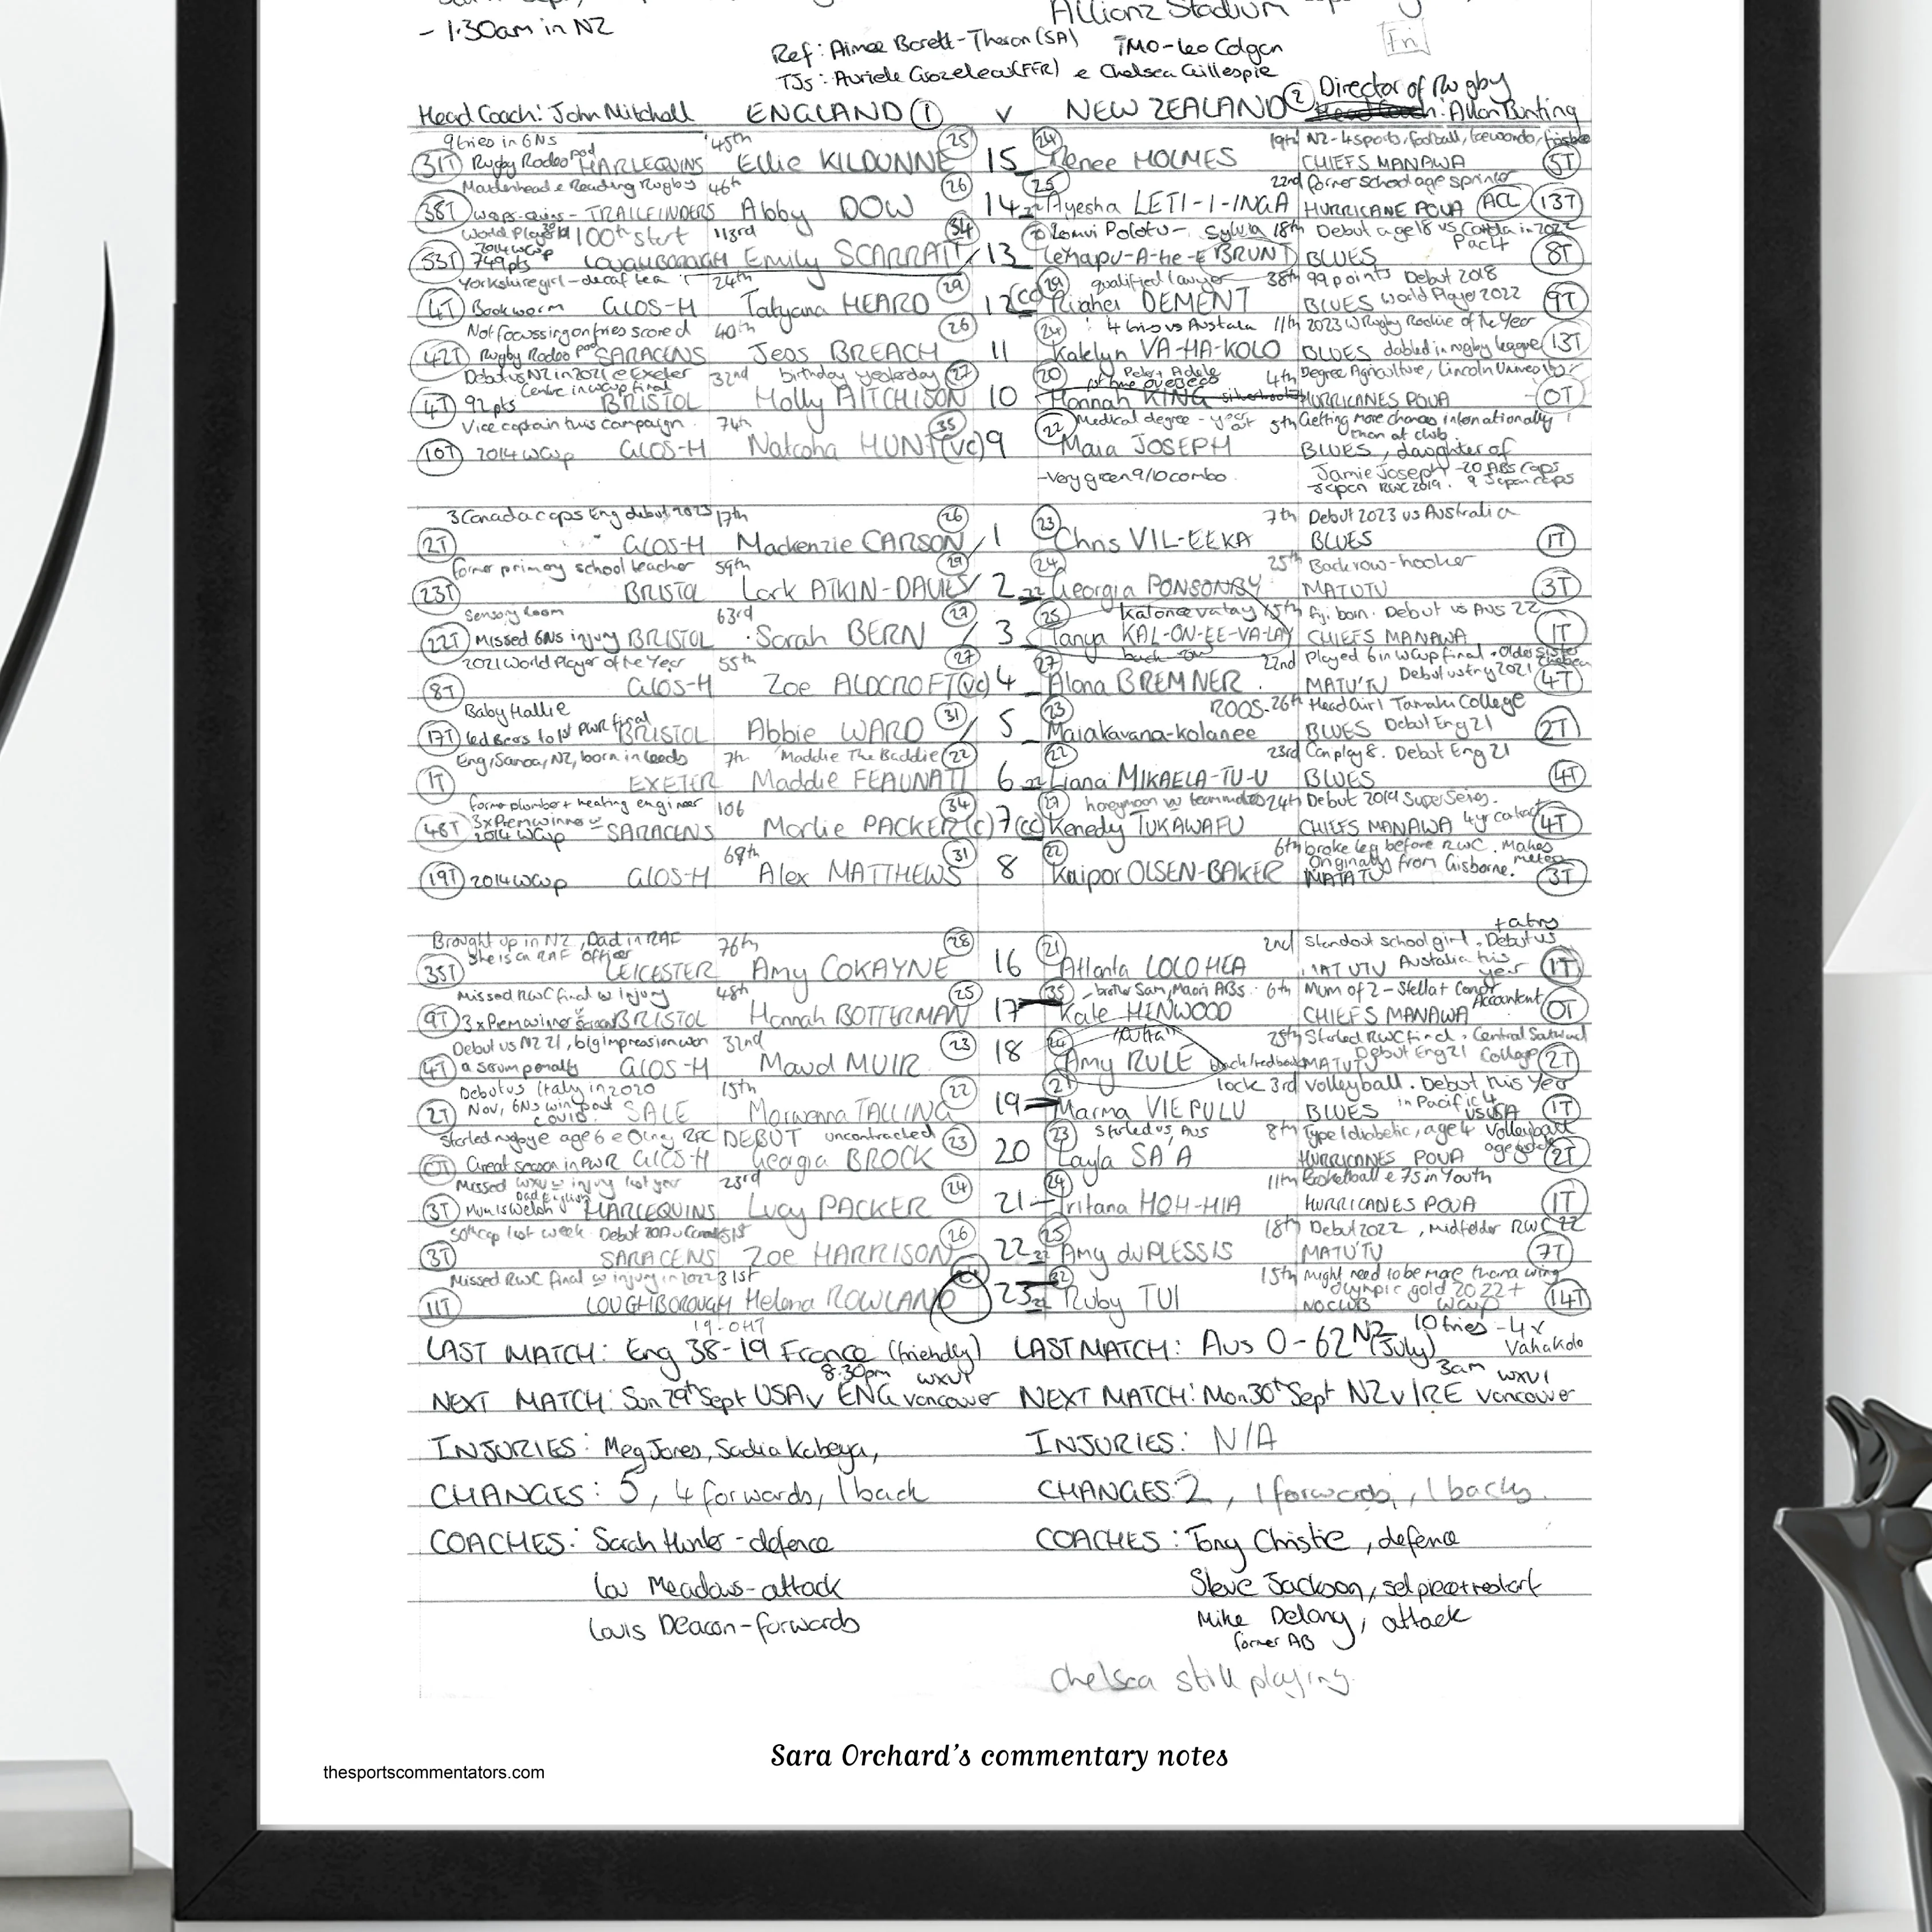 - 1:30am in NZ
Allianz Stadium
Fri
Ref: Aimee Barett-Theron (SA) TMO - Leo Colgan
TJs: Auriele Groizeleau (FFR) e Chelsea Gillespie
Head Coach: John Mitchell ENGLAND 1 v NEW ZEALAND 2 Director of Rugby : Allan Bunting
9 tries in 6Ns 45th 25 24 19th NZ - 4 sports, football, taewondo, frisbee
31T Rugby Rodeo pod HARLEQUINS Ellie KILDUNNE 15 Renee HOLMES CHIEFS MANAWA 5T
Maidenhead e Reading Rugby 46th 26 25 22nd former school age sprinter
38T wasps-quins - TRAILFINDERS Abby DOW 14 22 Ayesha LETI-I-INGA HURRICANE POUA ACL 13T
World Player 19 100th start 113rd 34 20 Lomui Polotu- Sylvia 18th Debut age 18 vs Canada in 2022 Pac4
53T 2014 WCup 749pts LOUGHBOROUGH Emily SCARRATT / 13 Lehapu-A-he-E BRUNT BLUES 8T
Yorkshire girl - decaf tea 24th 29 29 qualified lawyer 38th 99 points Debut 2018
4T Bookworm GLOS-H Tatyana HEARD 12 (cc) Ruahei DEMENT BLUES World Player 2022 9T
Not focussing on tries scored 40th 26 24 4 tries vs Australia 11th 2023 W Rugby Rookie of the Year
42T Rugby Rodeo pod SARACENS Jess BREACH 11 Katelyn VA-HA-KOLO BLUES dabled in rugby league 13T
Debut vs NZ in 2021 e Exeter 32nd birthday yesterday 27 20 Peter + Adele 4th Degree Agriculture, Lincoln
4T 92pts Centre in WCup final BRISTOL Holly AITCHISON 10 Hannah KING HURRICANES POUA 0T
Vice captain this campaign 74th 35 22 Medical degree - year out 5th Getting more chances internationally than at club
10T 2014 WCup GLOS-H Natasha HUNT (vc) 9 Maia JOSEPH BLUES, daughter of
- Very green 9/10 combo Jamie Joseph - 20 ABs caps
Japan RWC 2019. 9 Japan caps
3 Canada caps Eng debut 2023 17th 26 23 7th Debut 2023 vs Australia
2T GLOS-H Mackenzie CARSON / 1 Chris VIL-EEKA BLUES 1T
former primary school teacher 59th 29 24 25th Backrow-hooker
23T BRISTOL Lark ATKIN-DAVIES / 2 22 Georgia PONSONBY MATUTU 3T
Sensory Room 63rd 27 25 katoneevatay 15th Fiji born. Debut vs Aus 22
22T Missed 6Ns injury BRISTOL Sarah BERN / 3 Tanya KAL-ON-EE-VA-LAY CHIEFS MANAWA 1T
2021 World Player of the Year 55th 27 27 back row 22nd Played 6 in WCup final + Older sister Chelsea
8T GLOS-H Zoe ALDCROFT (vc) 4 Alana BREMNER MATU'TU Debut vs try 2021 4T
Baby Hallie 31 23 ROOS- 26th Head Girl Tamaki College
17T led Bears to 1st PWR final BRISTOL Abbie WARD / 5 Maiakavana-kolanee BLUES Debut Eng 21 2T
Eng, Samoa, NZ, born in Leeds 7th "Maddie The Baddie" 22 22 23rd Can play 8. Debut Eng 21
1T EXETER Maddie FEAUNATI 6 22 Liana MIKAELA-TU-U BLUES 4T
former plumber + heating engineer 106 34 27 honeymoon w teammates 24th Debut 2019 Super Series.
46T 3x Prem winner 2014 WCup SARACENS Marlie PACKER (c) 7 (cc) Kenedy TUKAWAFU CHIEFS MANAWA 4yr contract 4T
68th 31 22 6th broke leg before RWC. Makes metres
19T 2014 WCup GLOS-H Alex MATTHEWS 8 Kaipo OLSEN-BAKER MATATU Originally from Gisborne. 3T
Brought up in NZ, Dad in RAF 76th 28 21 2nd Standout school girl. Debut vs + a try
35T She is an RAF Officer LEICESTER Amy COKAYNE 16 Atlanta LOLOHEA MATUTU Australia this year 1T
Missed RWC final w injury 48th 25 35 - brother Sam, Maori ABs. 6th Mum of 2 - Stella + Conor
9T 3x Prem winner BRISTOL Hannah BOTTERMAN 17 Kate HENWOOD CHIEFS MANAWA Accountant 0T
Debut vs NZ 21, big impression won 32nd 23 24 25th Started RWC final. Central Southland College
4T a scrum penalty GLOS-H Maud MUIR 18 Amy RULE MATUTU Debut Eng 21 2T
Debut vs Italy in 2020 15th 22 21 lock 3rd Volleyball. Debut this year
2T Nov, 6Ns win post covid SALE Morwenna TALLING 19 Marma VIEPULU BLUES in Pacific 4 vs USA 1T
Started rugby age 6 e Olney RFC DEBUT uncontracted 23 23 started vs Aus 8th Type 1 diabetic, age 4 Volleyball
0T Great season in PWR GLOS-H Georgia BROCK 20 Layla SA'A HURRICANES POUA 2T
Missed WXV w injury last year 23rd 24 24 11th Basketball e 7s in Youth
3T Mum is Welsh Dad English HARLEQUINS Lucy PACKER 21 Iritana HOH-HIA HURRICANES POUA 1T
50th cap last week. Debut v Canada 51st 26 25 18th Debut 2022, midfielder RWC 22
3T SARACENS Zoe HARRISON 22 22 Amy duPLESSIS MATU'TU 7T
Missed RWC final w injury in 2022 31st 32 15th Might need to be more than a wing
11T LOUGHBOROUGH Helena ROWLAND 23 22 Ruby TUI NO CLUB Olympic gold 2022 + WCup 14T
19-0HT
LAST MATCH: Eng 38-19 France (friendly) LAST MATCH: Aus 0-62 NZ (July) 10 tries - 4x Vahakolo
NEXT MATCH: Sun 29th Sept USA v ENG Vancouver 8:30pm WXV1 NEXT MATCH: Mon 30th Sept NZ v IRE Vancouver 3am WXV1
INJURIES: Meg Jones, Sadia Kabeya, INJURIES: N/A
CHANGES: 5, 4 forwards, 1 back CHANGES: 2, 1 forwards, 1 backs.
COACHES: Sarah Hunter - defence COACHES: Tony Christie, defence
Lou Meadows - attack Steve Jackson, set piece + restart
Louis Deacon - forwards Mike Delany, attack
former AB
Chelsea still playing.
Sara Orchard's commentary notes
thesportscommentators.com